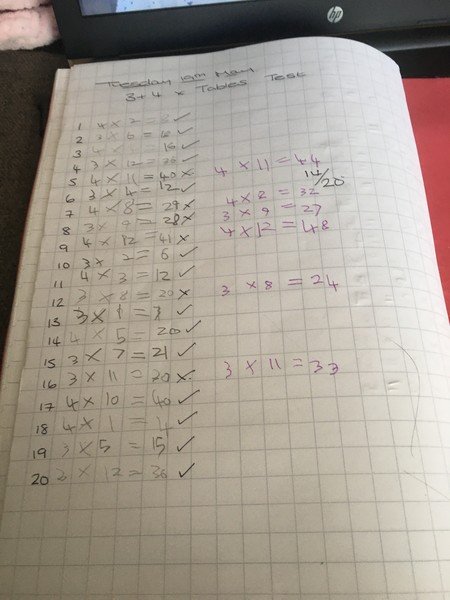 hp
Tuesday 19th May
3+4 x Tables Test
1 4 x 2 = 8 ✓
2 3 x 6 = 18 ✓
3 4 x = 16 ✓
4 3 x 12 = 36 ✓
5 4 x 11 = 40 x 4 x 11 = 44
14/20
6 3 x 4 = 12 ✓
7 4 x 8 = 29 x 4 x 8 = 32
8 3 x 9 = 28 x 3 x 9 = 27
9 4 x 12 = 41 x 4 x 12 = 48
10 3 x 2 = 6 ✓
11 4 x 3 = 12 ✓
12 3 x 8 = 20 x 3 x 8 = 24
13 3 x 1 = 3 ✓
14 4 x 5 = 20 ✓
15 3 x 7 = 21 ✓
16 3 x 11 = 30 x 3 x 11 = 33
17 4 x 10 = 40 ✓
18 4 x 1 = 4 ✓
19 3 x 5 = 15 ✓
20 3 x 12 = 36 ✓